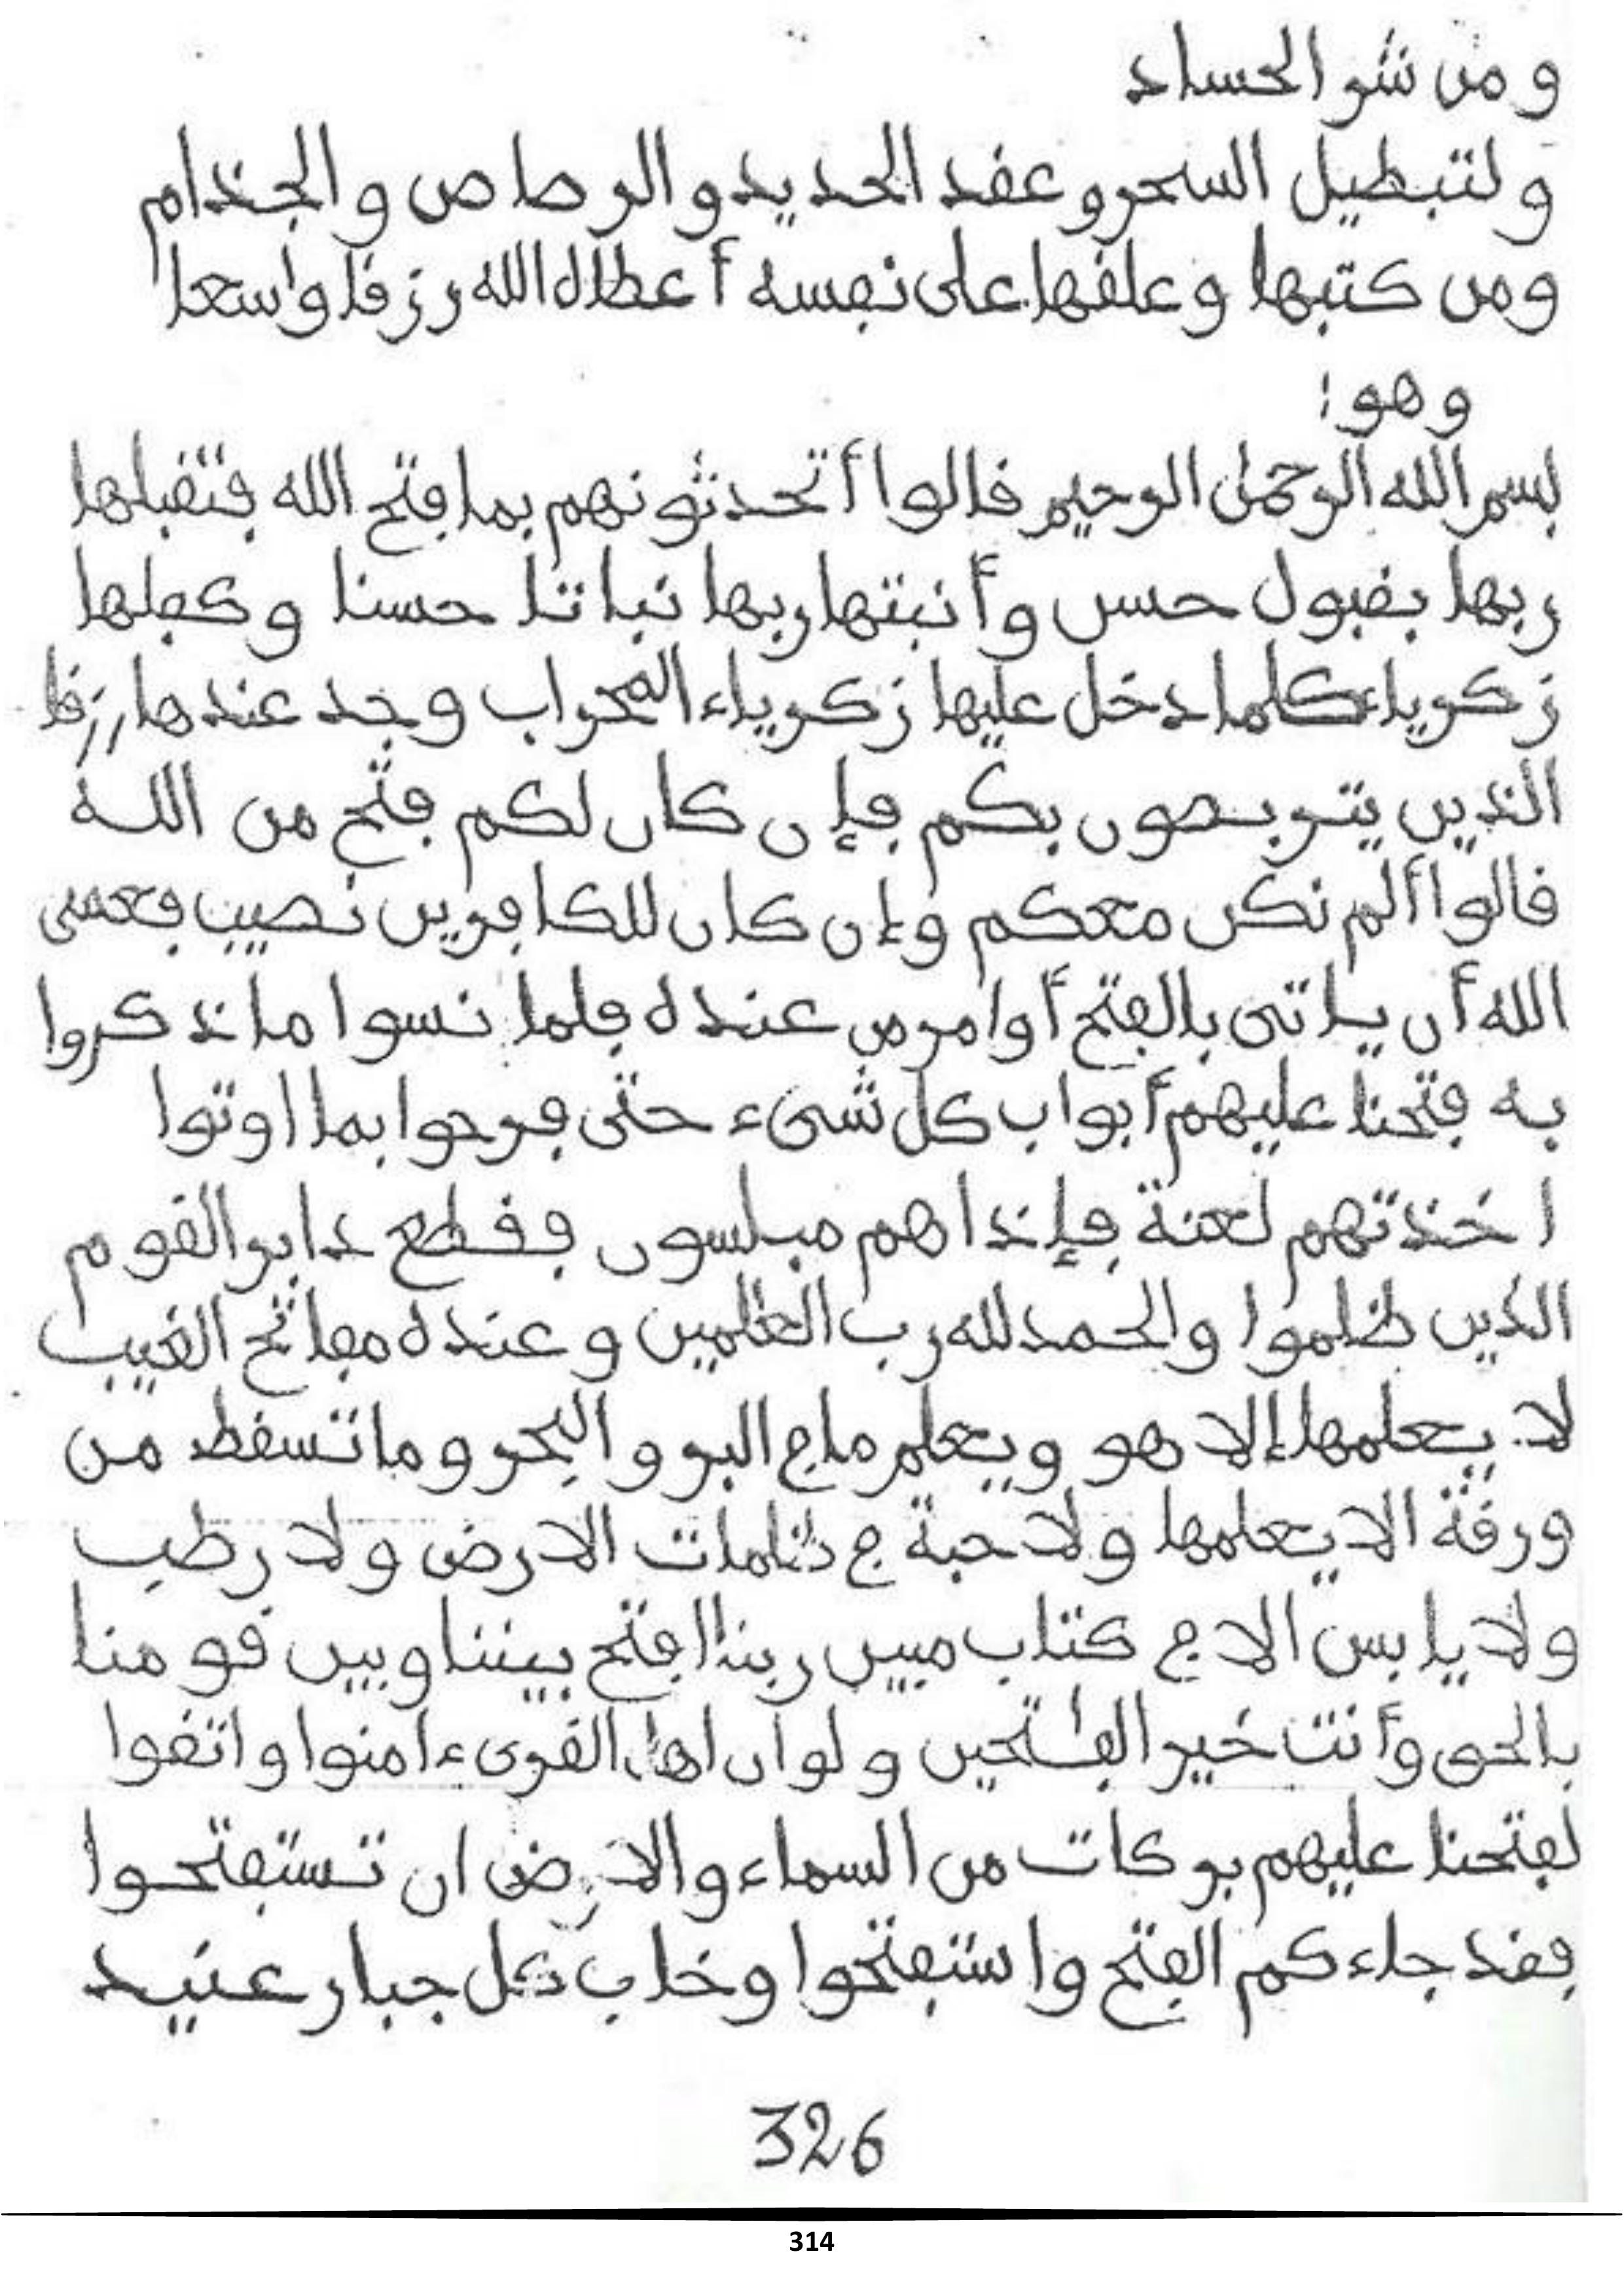 و من شر الحساد
و لتبطيل السحر و عقد الحديد و الرصاص و الجذام
ومن كتبها وعلقها على نفسه أعطاه الله رزقا واسعا
وهو:
بسم الله الرحمٰن الرحيم قالوا أتحدثونهم بما فتح الله فتقبلها
ربها بقبول حسن وأنبتها ربها نباتا حسنا وكفلها
زكرياء كلما دخل عليها زكرياء المحراب وجد عندها رزقا
الذين يتربصون بكم فإن كان لكم فتح من الله
قالوا ألم نكن معكم وإن كان للكافرين نصيب فعسى
الله أن ياتى بالفتح أوامر من عنده فلما نسوا ما ذكروا
به فتحنا عليهم أبواب كل شىء حتى فرحوا بما اوتوا
اخذتهم لعنة فإذا هم مبلسون فقطع دابر القوم
الذين ظلموا والحمد لله رب العٰلمين وعنده مفاتح الغيب
لا يعلمها إلا هو ويعلم ما في البر و البحر و ما تسقط من
ورقة الا يعلمها ولا حبة في ظلمات الارض ولا رطب
ولا يابس الا في كتاب مبين ربنا افتح بيننا وبين قومنا
بالحق وأنت خير الفٰتحين ولو ان اهل القرى ءامنوا واتقوا
لفتحنا عليهم بركات من السماء والارض ان تستفتحوا
فقد جاءكم الفتح واستفتحوا وخاب كل جبار عنيد
326
314